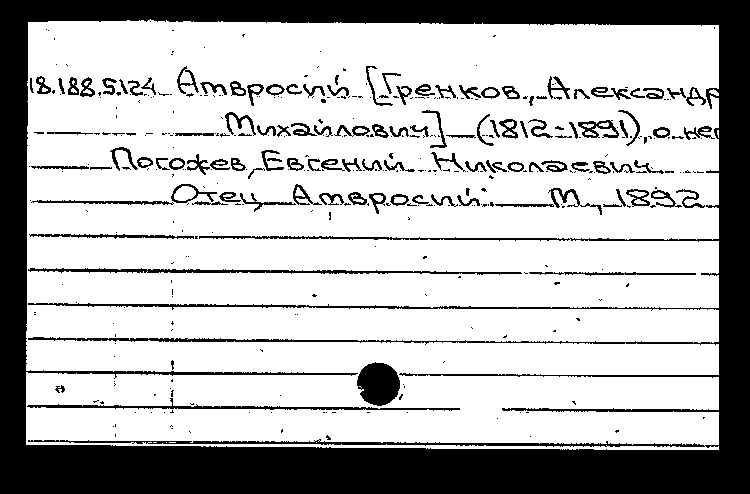 18.188.5.124 Амвросий [Гренков, Александр
Михайлович] (1812-1891), о нем
Погожев, Евгений Николаевич
Отец Амвросий. М., 1892